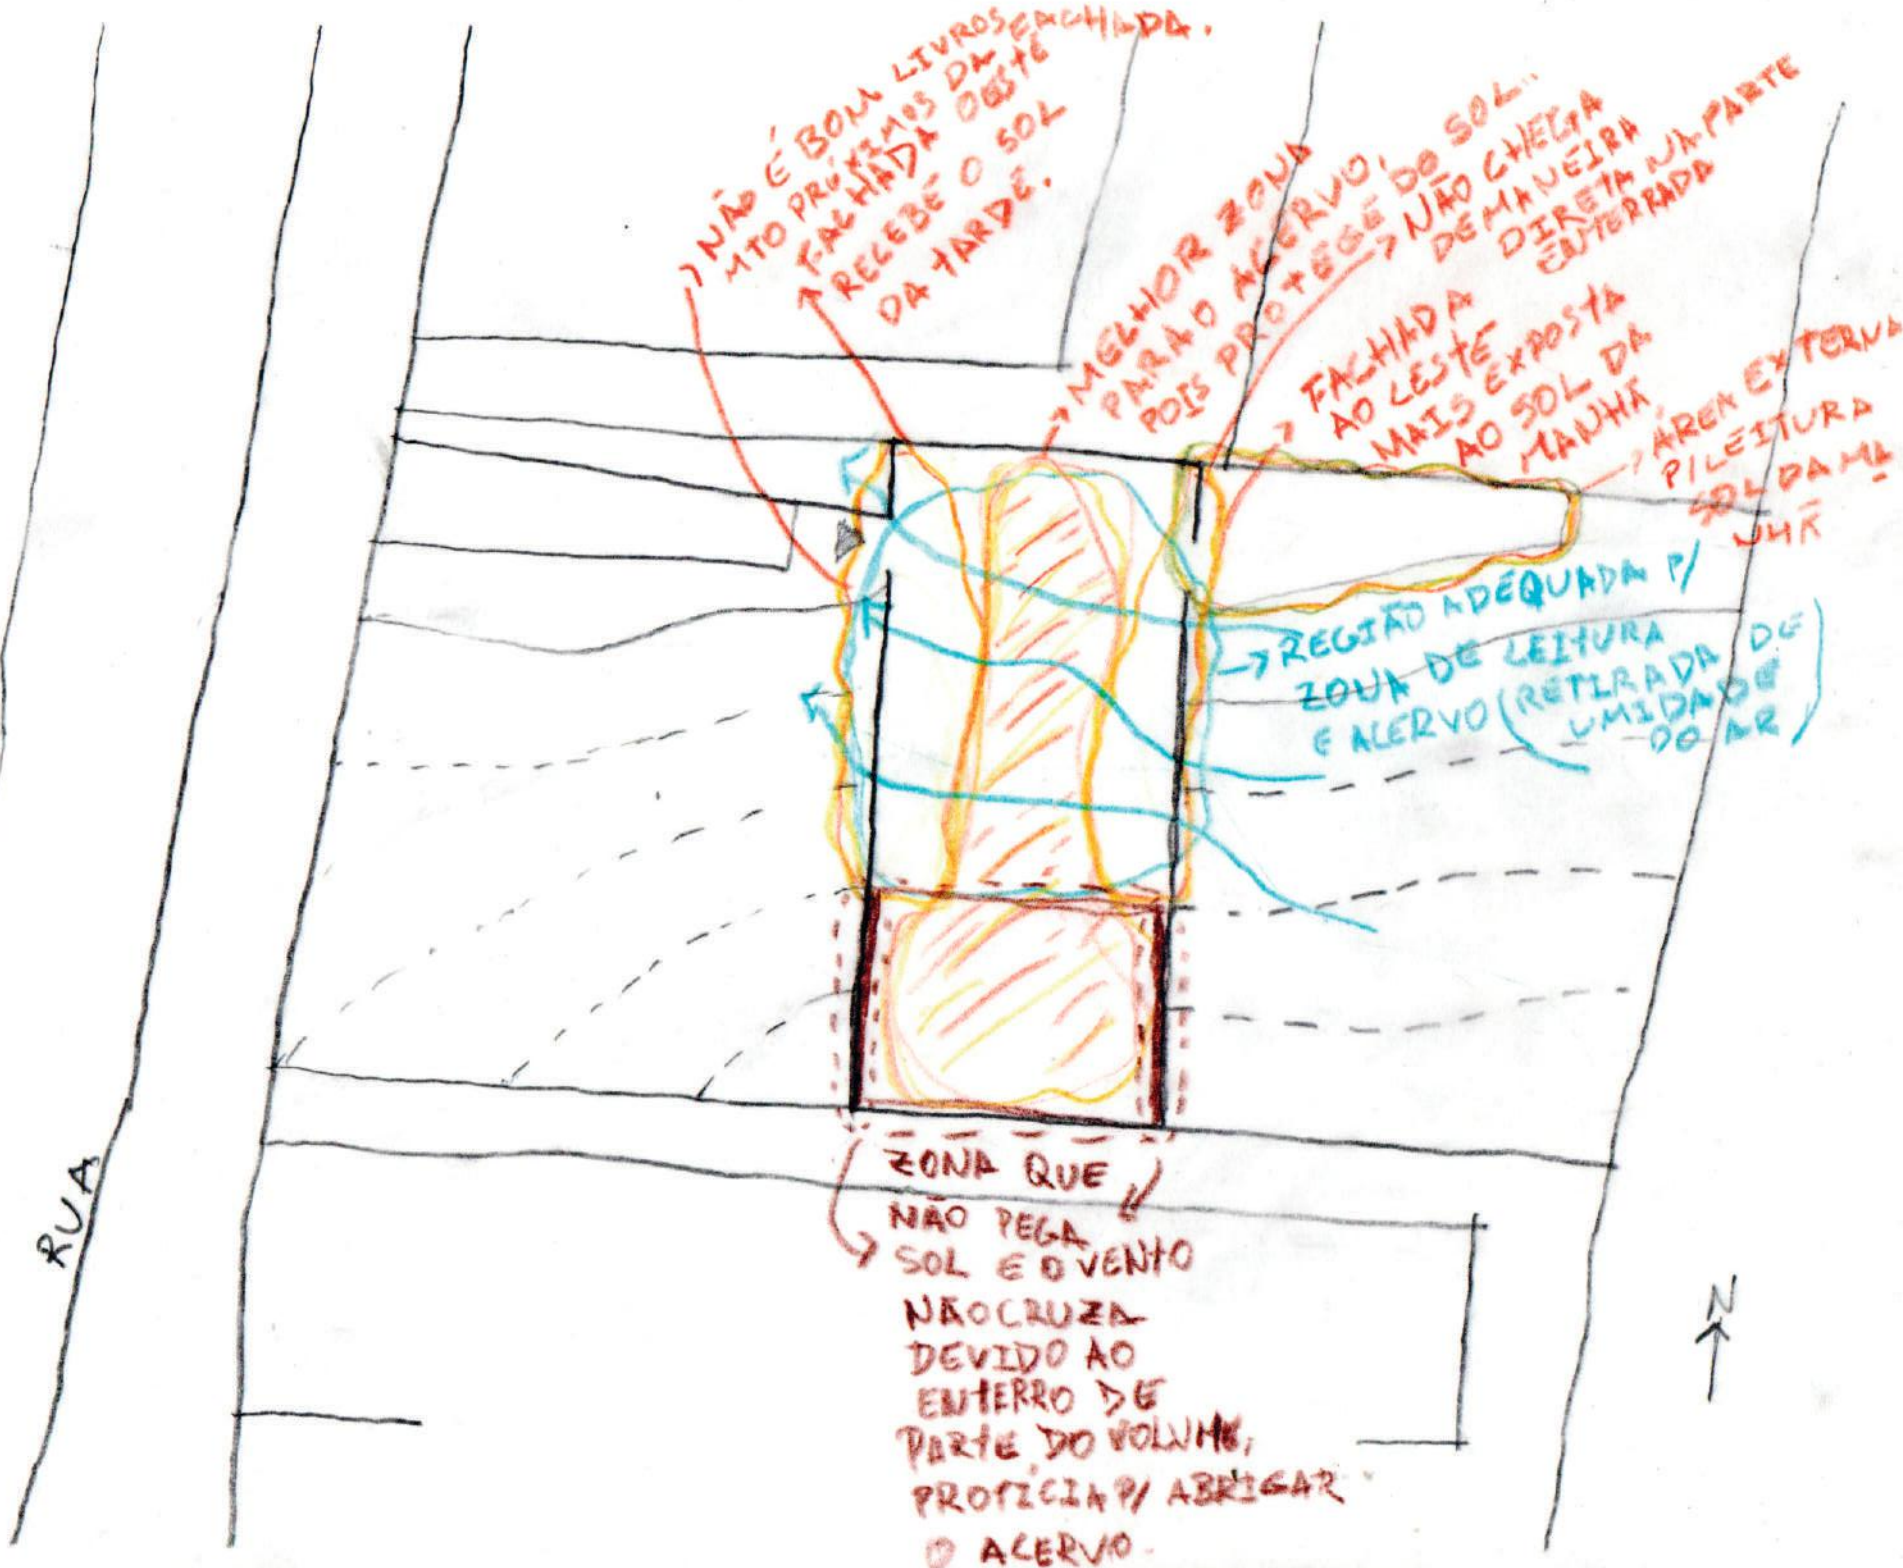 NÃO É BOM LIVROS
MTO PRÓXIMOS DA FACHADA.
FACHADA OESTE
RECEBE O SOL
DA TARDE.
MELHOR ZONA
PARA O ACERVO,
POIS PROTEGE DO SOL.
NÃO CHEGA
DE MANEIRA
DIRETA NA PARTE
ENTERRADA
FACHADA
AO LESTE
MAIS EXPOSTA
AO SOL DA
MANHÃ
ÁREA EXTERNA
P/ LEITURA
SOL DA MA
NHÃ
REGIÃO ADEQUADA P/
ZONA DE LEITURA
E ACERVO (RETIRADA DE
UMIDADE
DO AR)
RUA
ZONA QUE
NÃO PEGA
SOL E O VENTO
NÃO CRUZA
DEVIDO AO
ENTERRO DE
PARTE DO VOLUME,
PROPÍCIA P/ ABRIGAR
O ACERVO.
N